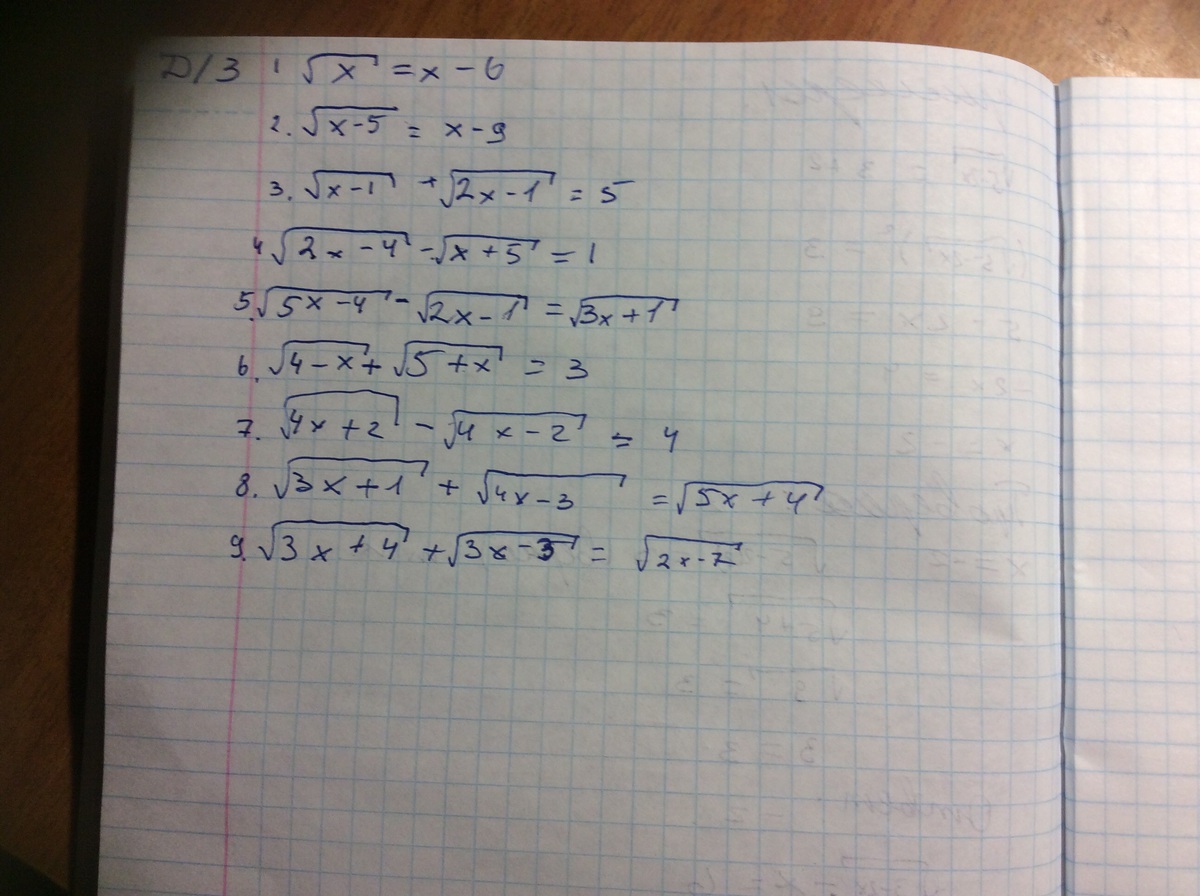 Д/З 1 √x = x - 6
2. √x-5 = x-9
3. √x-1 + √2x-1 = 5
4 √2x-4 - √x+5 = 1
5. √5x-4 - √2x-1 = √3x+1
6. √4-x + √5+x = 3
7. √4x+2 - √4x-2 = 4
8. √3x+1 + √4x-3 = √5x+4
9. √3x+4 + √3x-3 = √2x-7